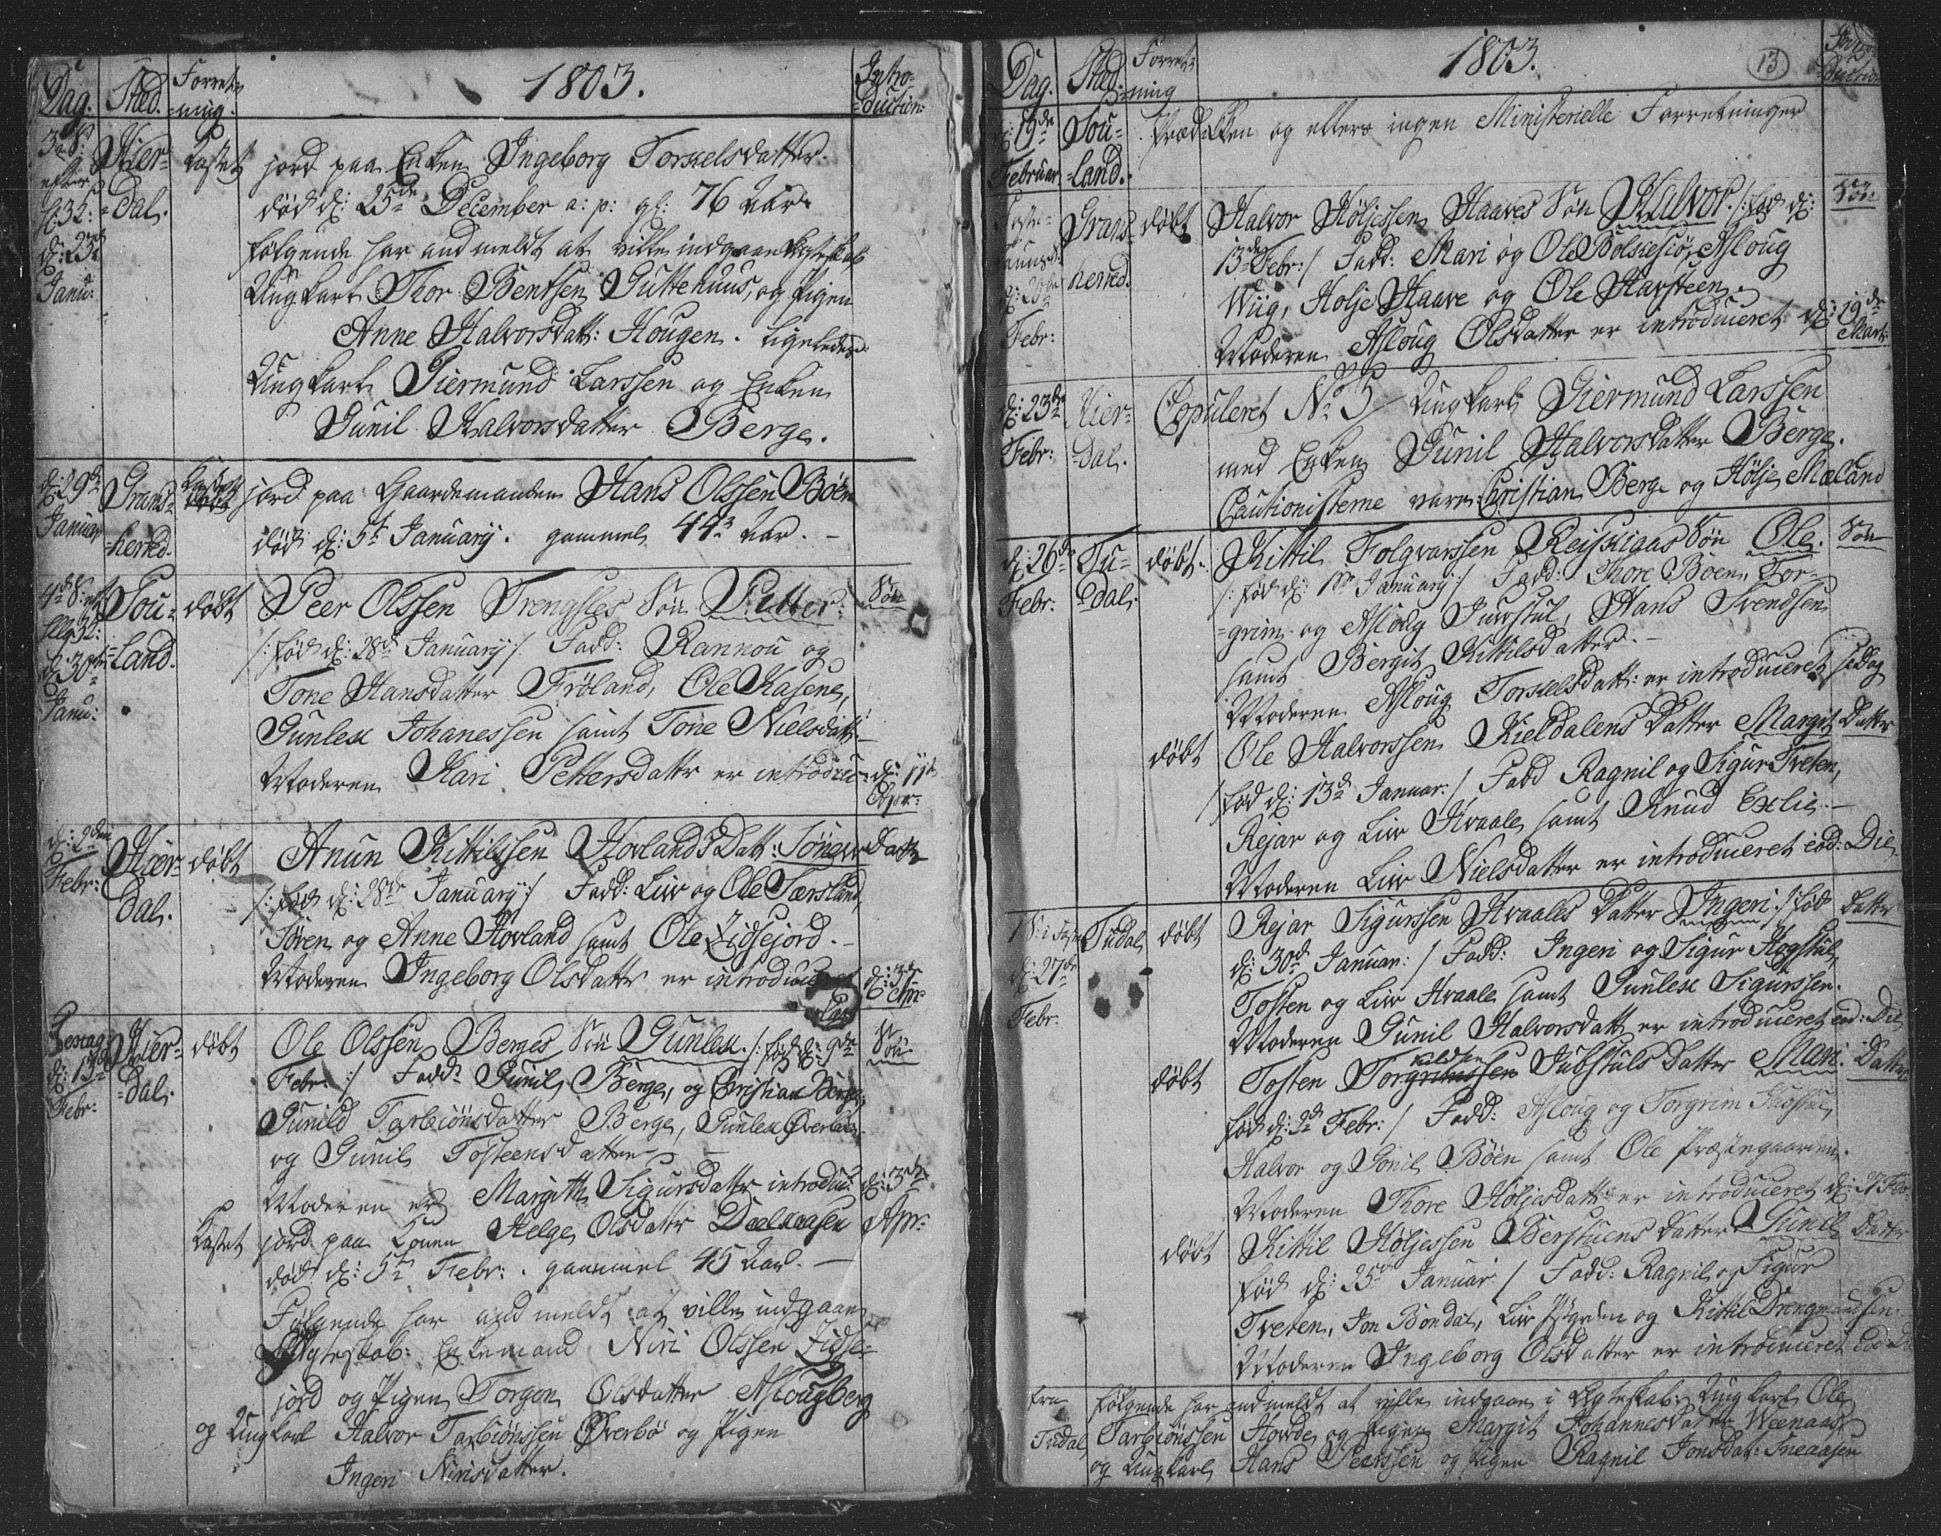 Dag. Sted. Forret-
-ning.
1803.
Intro-
-duction:
3die S:
efter
H:3K:
d: 23de
Janu:
Hier-
-dal.
kastet jord paa Enken Ingeborg Torkelsdatter.
død d: 25de December a: p: gl: 76 Aar.
følgende har andmeldt at ville indgaae Ægteskab
Ungkarl Thor Bentsen Guttehuus, og Pigen
Anne Halvorsdatt: Hougen. Ligeledes
Ungkarl Giermund Larssen og Enken
Gunil Halvorsdatter Berge.
d: 29de
Januar
Grans-
-herred.
kastet jord paa Gaardemanden Hans Olssen Böen
død d: 5te January. gammel 44 Aar. —
4de S: eft
d: 30te
Janu:
Sou-
-land.
døbt Peer Olssen Trengsles Søn Petter. Søn
/: fød d: 28de January :/ Fadd: Rannou og
Tone Hansdatter Fröland, Ole Kasene,
Gunlex Johanessen samt Tone Nielsdatt.
Moderen Kari Pettersdattr er introdu- d: 11te
Apr:
d: 2den
Febr:
Hier-
dal.
døbt Anun Kittilssen Hovlands Datt: Datt
/: fød d: 28de January :/ Fadd: Liv og Ole Særsland,
Sören og Anne Hovland samt Ole Lidsejord. —
Moderen Ingeborg Olsdattr er introdu d: 3de
Apr:
Festag
d: 13de
Febr:
Hier-
-dal.
døbt Ole Olssen Berges Søn Gunlex. /: fød d: 9de Søn
Febr: :/ Fadd: Gunil Berge, og Christian Berge,
Gunild Tarbiönsdatter Berge, Gunlex Överbö
og Gunil Tosteensdatter —
Moderen er Margith Sigursdattr introdu: d: 3de
Apr:
kastet jord paa Konen Helge Olsdattr Daleaasen
død d: 5te Febr: . gammel 45 Aar. —
Følgende har andmeldt at ville indgaae
Ægteskab: Enkemand Niri Olssen Lidse-
jord og Pigen Torgon Olsdatter Aslougberg
og Ungkarl Halvor Tarbiönssen Överbö og Pigen
Ingeri Nirisdatter.
Dag. Sted. Forret-
-ning
1803.
13
Intro-
-duction
d: 19de
Februar
Sou-
-land.
Prædiken og ellers ingen Ministerielle Forretninger
d: 20de
Febr:
Grans-
herred.
døbt Halvor Höljessen Haaves Søn Halvor. /: fød d: Søn
13de Febr: :/ Fadd: Mari og Ole Bolkesiö, Asloug
Wiig, Holje Haave og Ole Harsteen.
Moderen Asloug Olsdatter er introduceret d: 19de
Mart:
d: 23de
Febr:
Hier-
-dal.
Copuleret No 5 Ungkarl Giermund Larssen
med Enken Gunil Halvorsdatter Berge.
Cautionisterne vare Christian Berge og Hölje Mæland
d: 26de
Febr:
Tu-
-dal.
døbt. Kittil Folqvarssen Reiskigas Søn Ole. Søn
/: fød d: 1ste January :/ Fadd: Thore Böen, Tor-
-grim og Asloug Juvstul, Hans Svendsen
samt Bergit Kittilsdatter. —
Moderen Asloug Torkelsdatt: er introduceret s: Dag
døbt Ole Halvorssen Kieldalens Datter Margit Datter
/: fød d: 13de Januar: :/ Fadd Ragnil og Sigur Tveten,
Rejar og Liv Hvaale samt Knud Exlie. —
Moderen Liv Nielsdatter er introduceret eod: Die
d: 27de
Febr:
Tudal
døbt Rejar Sigurssen Hvaales Datter Ingeri. /: fød Datter
d: 30de Januar: :/ Fadd: Ingeri og Sigur Hogstul,
Tosten og Liv Hvaale samt Gunlex Sigurssen.
Moderen Gunil Halvorsdatt er introduceret eod: Die
døbt Tosten Juvstuls Datter Mari. Datter
fød d: 2de Febr: :/ Fadd: Asloug og Torgrim Juvstul,
Halvor og Gonil Böen samt Ole Præstegaarden.
Moderen Thore Höljesdattr er introduceret d: 27 Feb:
døbt Kittil Höljessen Berstuens Datter Gunil Datter
fød d: 25de Januar :/ Fadd: Ragnil og Sigur
Tveten, Jon Bondal, Liv og Kittil Drengmandsen.
Moderen Ingeborg Olsdatter er introduceret eod Die
fra
Tudal
følgende har andmeldt at ville indgaae i Ægteskab: Ungkarl Ole
Tarbiönssen Hovde og Pigen Margit Johannesdatter Weenaas
og Ungkarl Hans Peerssen og Pigen Ragnil Jonsdat: Sneaasen